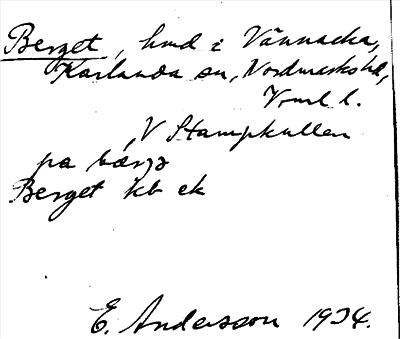 Berget, hmd i Vännacka,
Karlanda sn, Nordmarks hd,
Vrml l.
V Stampkullen
pa bærjə
Berget kb ek
E. Andersson 1934.